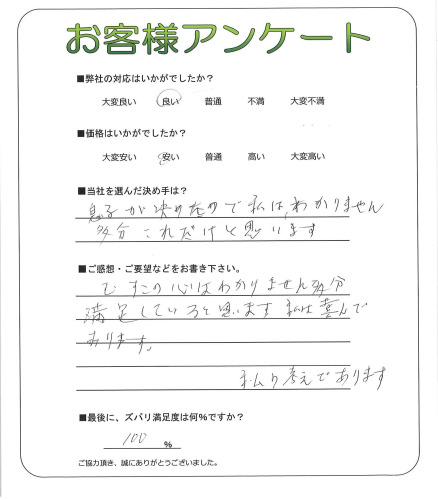 お客様アンケート
■弊社の対応はいかがでしたか?
大変良い 良い 普通 不満 大変不満
■価格はいかがでしたか?
大変安い 安い 普通 高い 大変高い
■当社を選んだ決め手は?
息子が決めたので私は、わかりません
多分これだけと思います
■ご感想・ご要望などをお書き下さい。
むすこの心はわかりません多分
満足していると思います私は喜んで
おります。
私の考えであります
■最後に、ズバリ満足度は何%ですか?
100 %
ご協力頂き、誠にありがとうございました。